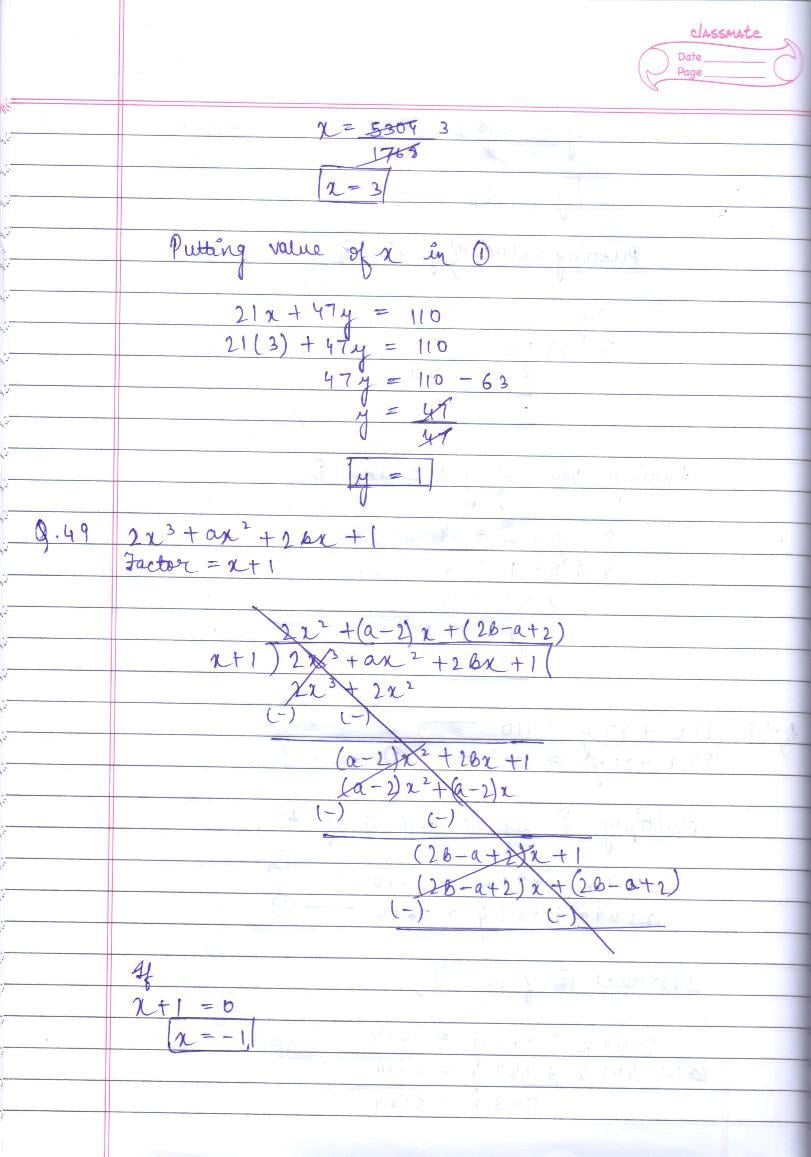 classmate
Date
Page
x = 5304 3
1768
x = 3
Putting value of x in ①
21x + 47y = 110
21(3) + 47y = 110
47y = 110 - 63
y = 47
47
y = 1
Q.49 2x³ + ax² + 2bx + 1
Factor = x+1
2x² + (a-2)x + (2b-a+2)
x+1 ) 2x³ + ax² + 2bx + 1 (
2x³ + 2x²
(-) (-)
(a-2)x² + 2bx + 1
(a-2)x² + (a-2)x
(-) (-)
(2b-a+2)x + 1
(2b-a+2)x + (2b-a+2)
(-) (-)
If
x+1 = 0
x = -1